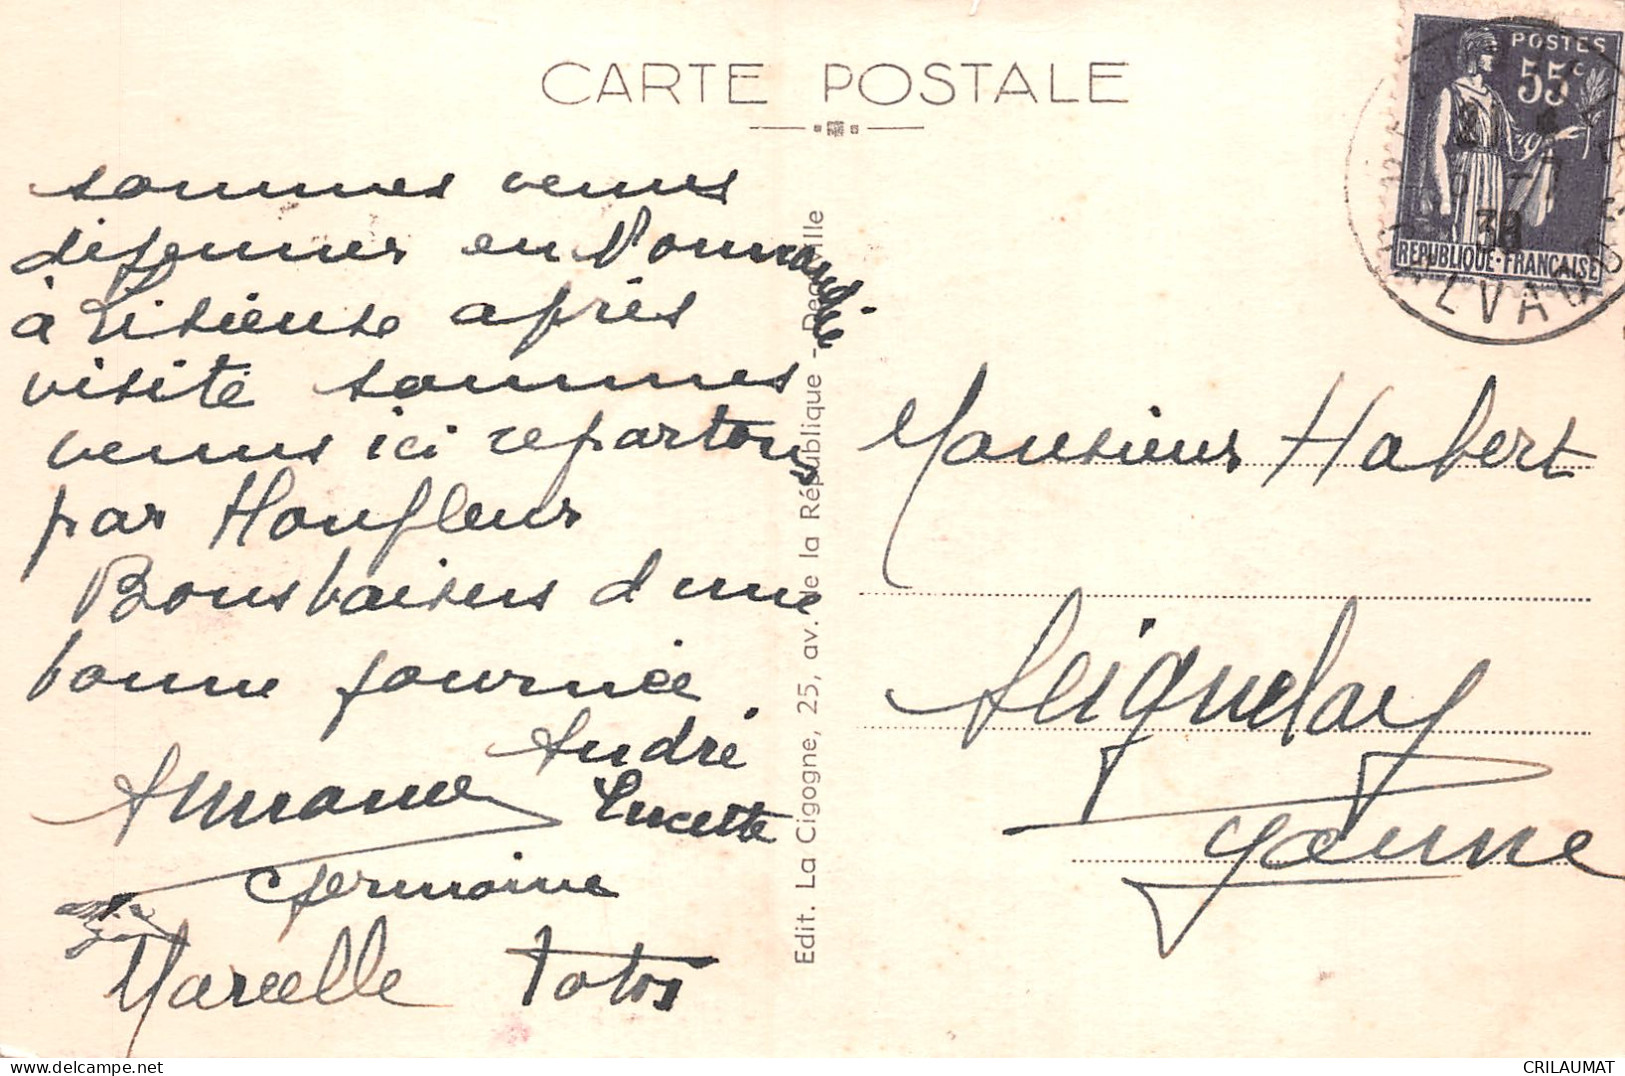 CARTE POSTALE
sommes venus
déjeuner en Normandie
à Lisieux après
visite sommes
venus ici repartons
par Honfleur
Bons baisers d une
bonne journée
André
Lucette
Germaine
Marcelle Totos
Edit. La Cigogne, 25, av. de la République - Deauville
POSTES
55c
REPUBLIQUE·FRANÇAISE
30
CALVADOS
Monsieur Habert
Seignelay
Yonne
CRILAUMAT